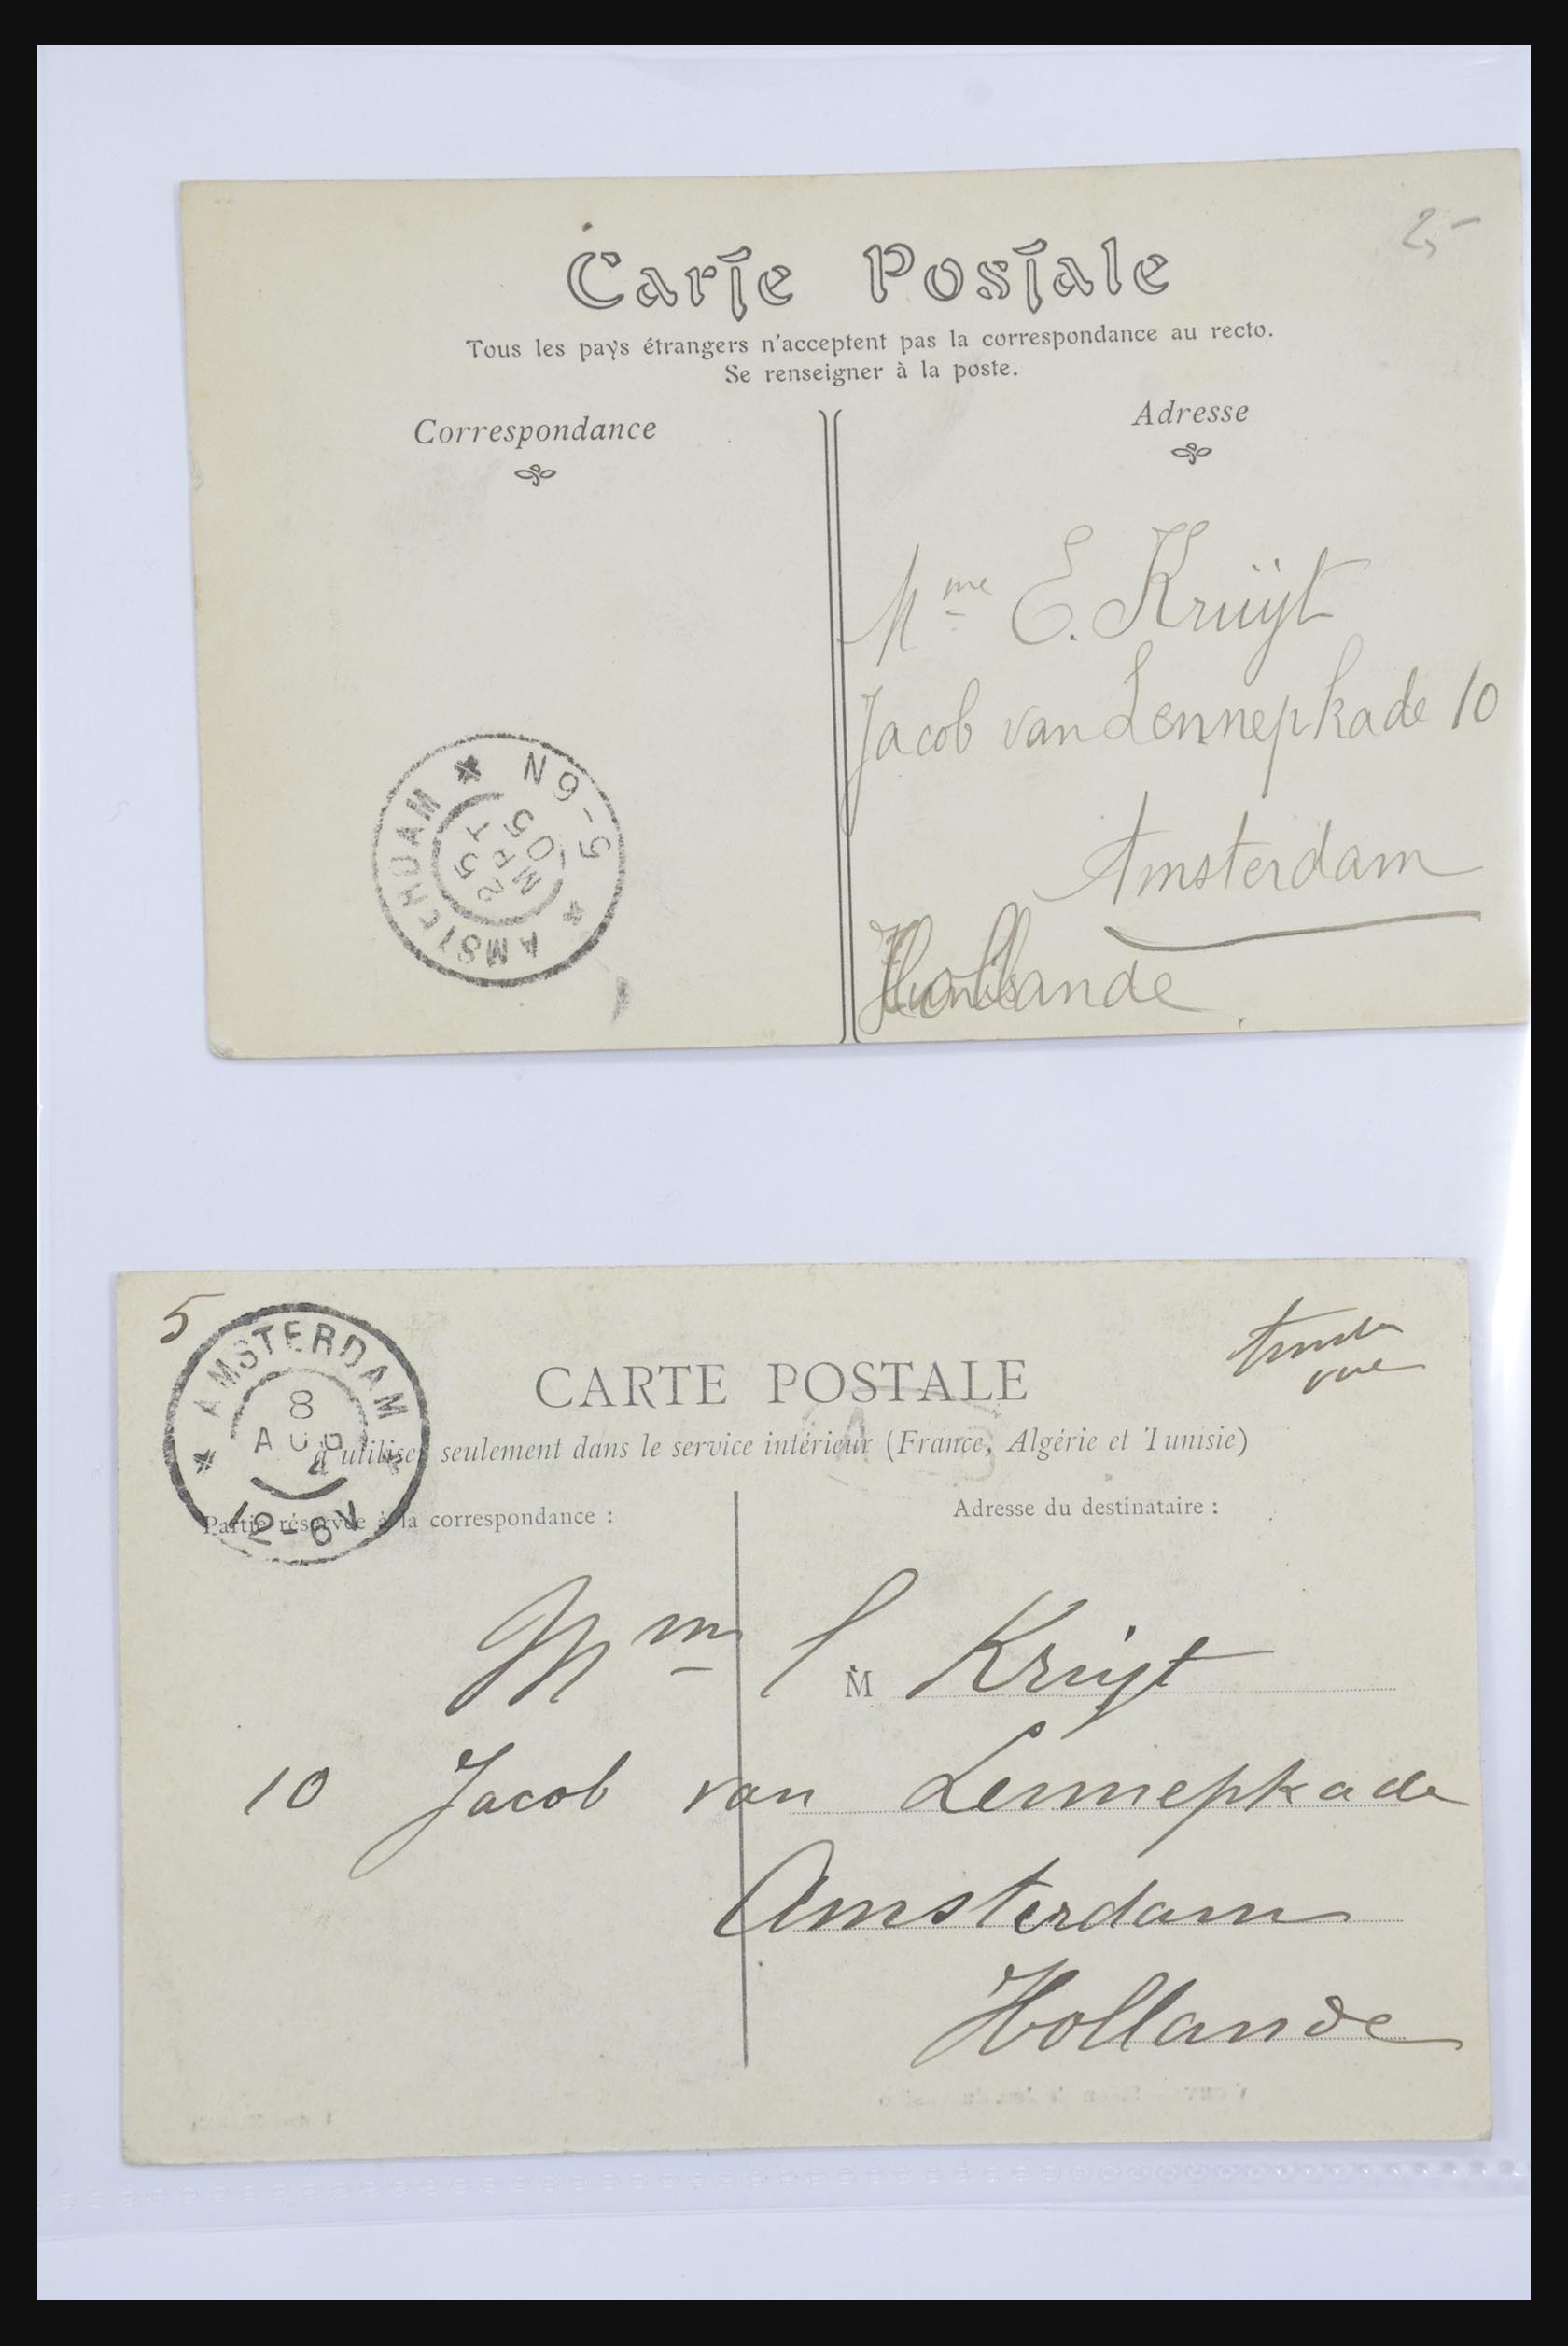 2,-
Carte Postale
Tous les pays étrangers n'acceptent pas la correspondance au recto.
Se renseigner à la poste.
Correspondance
Adresse
Mme E. Kruÿt
Jacob van Lennepkade 10
Amsterdam
Hollande
AMSTERDAM
25 MRT 05
5-9N
5
AMSTERDAM
8
AUG
12-6V
CARTE POSTALE
à utiliser seulement dans le service intérieur (France, Algérie et Tunisie)
Partie réservée à la correspondance :
Adresse du destinataire :
Mme
M Kruijt
10 Jacob van Lennepkade
Amsterdam
Hollande